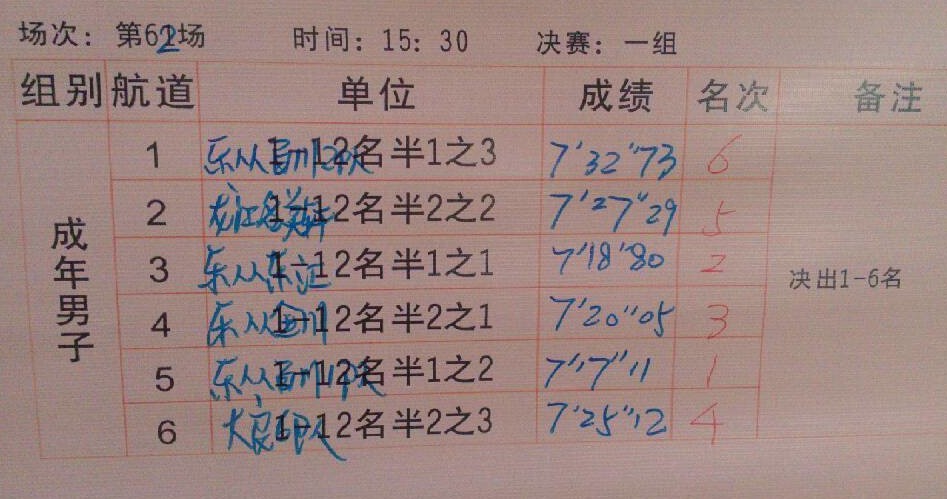 场次：第62场 时间：15：30 决赛：一组
组别 航道 单位 成绩 名次 备注
成年男子
1 乐从 1-12名半1之3 7'32"73 6
2 龙江 1-12名半2之2 7'27"29 5
3 乐从东 1-12名半1之1 7'18'80 2
4 乐从 1-12名半2之1 7'20"05 3
5 乐从 1-12名半1之2 7'17"11 1
6 大良 1-12名半2之3 7'25"12 4
决出1-6名